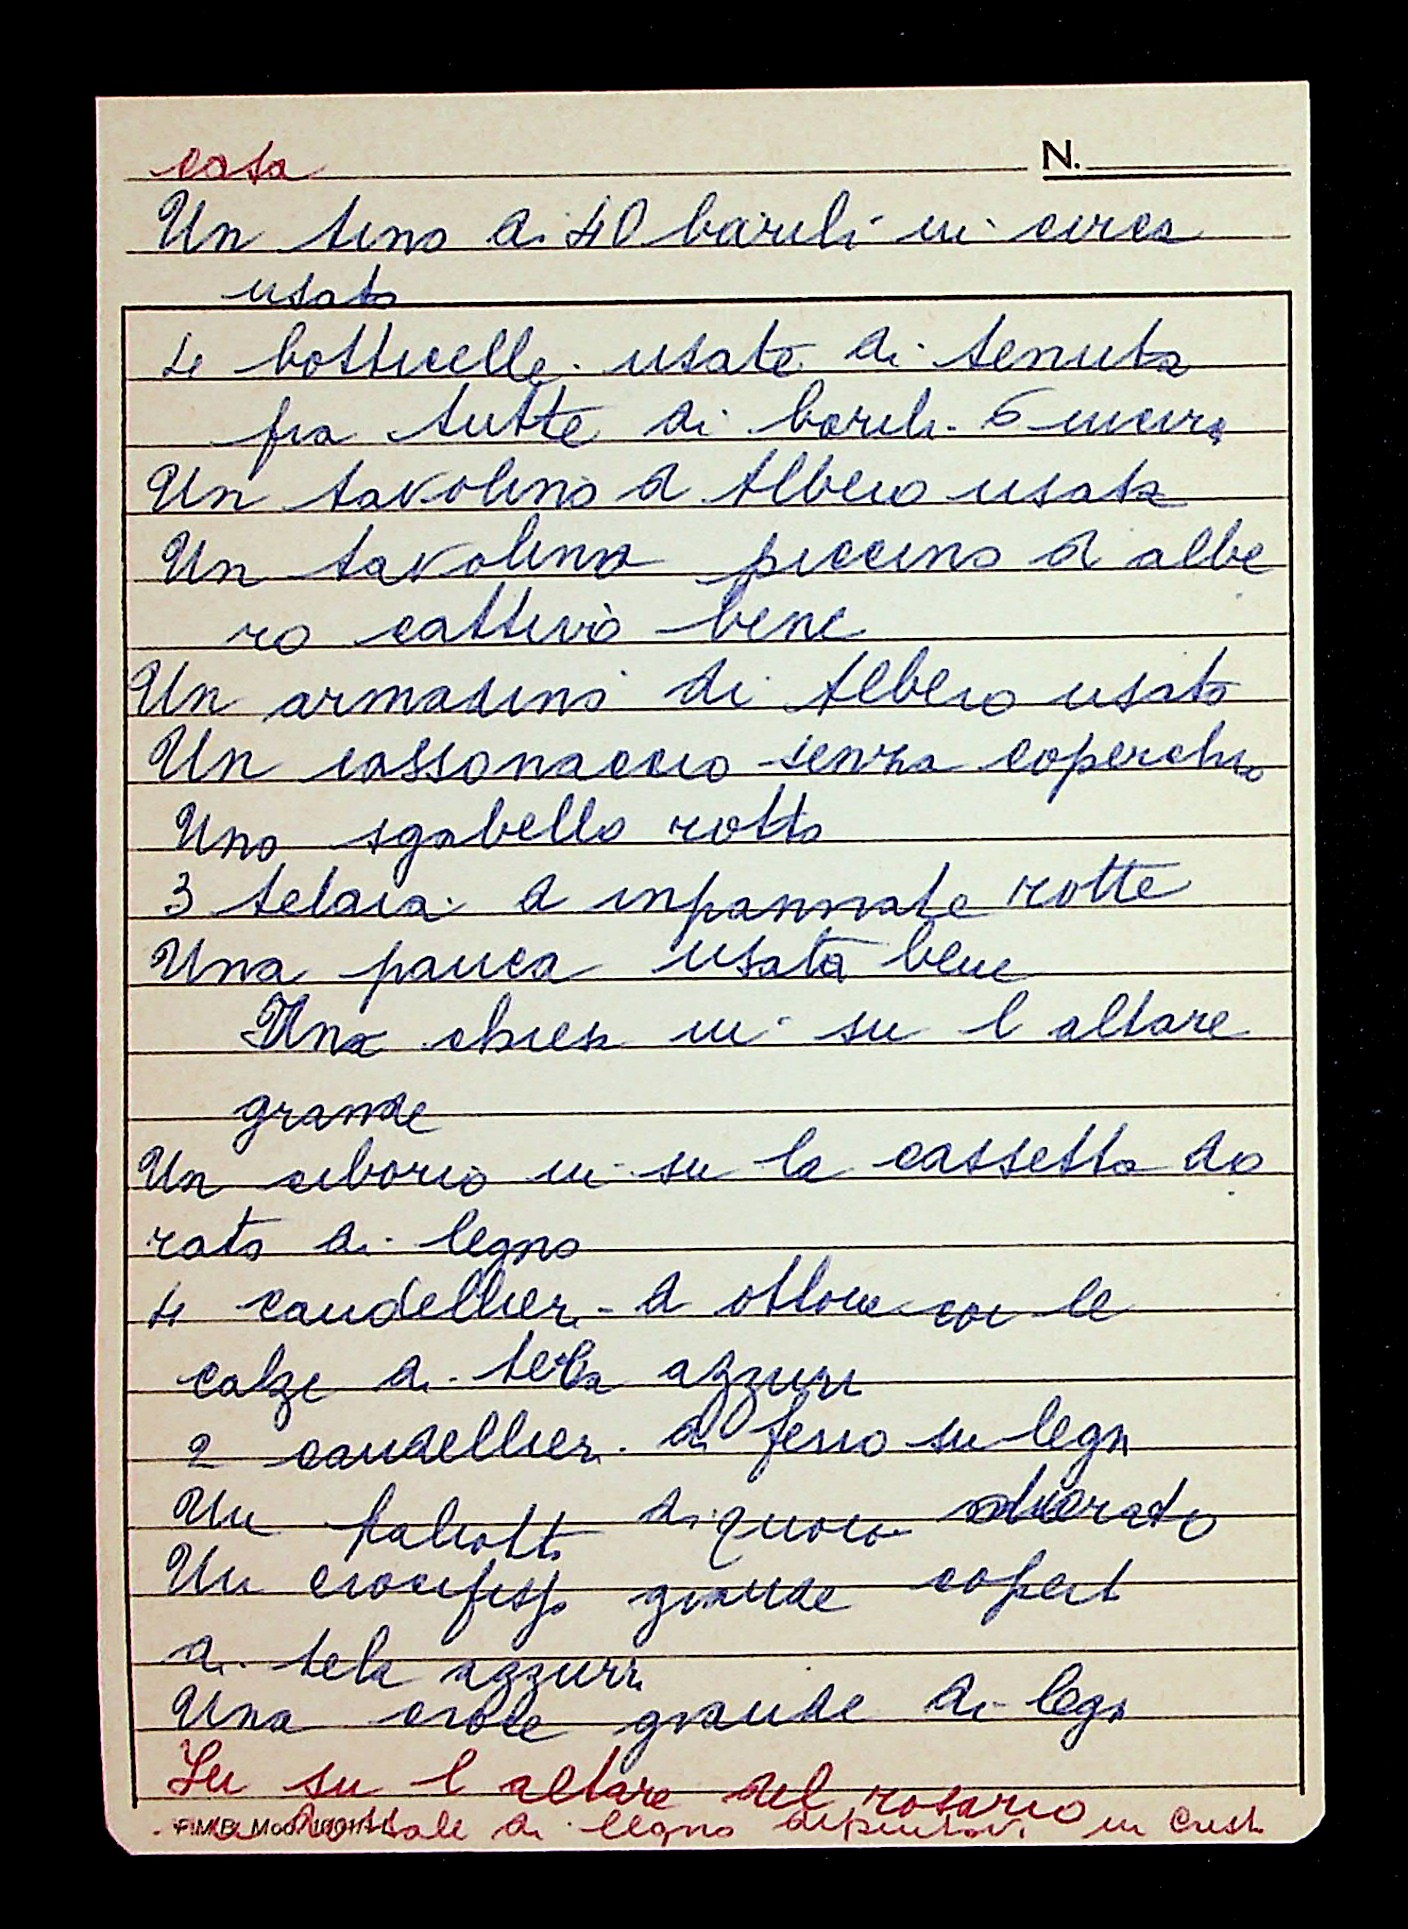 casa N.
Un tino di 40 barili in circa
usato
4 botticelle usate di tenuta
fra tutte di barili 6 in circa
Un tavolino d Albero usato
Un tavolino piccino d albe
ro cattivo bene
Un armadino di Albero usato
Un cassonaccio senza coperchio
Uno sgabello rotto
3 telaia d inpannate rotte
Una panca usata bene
Una chiesa in su l altare
grande
Un ciborio in su la cassetta do
rato di legno
4 candellieri d ottone con le
calze di tela azzurra
2 candellieri di ferro su legn
Un paliotto di quoio
Un crocifisso grande copert
di tela azzurra
Una croce grande di legn
In su l altare del rosario
dossale di legno dipintovi in Crist